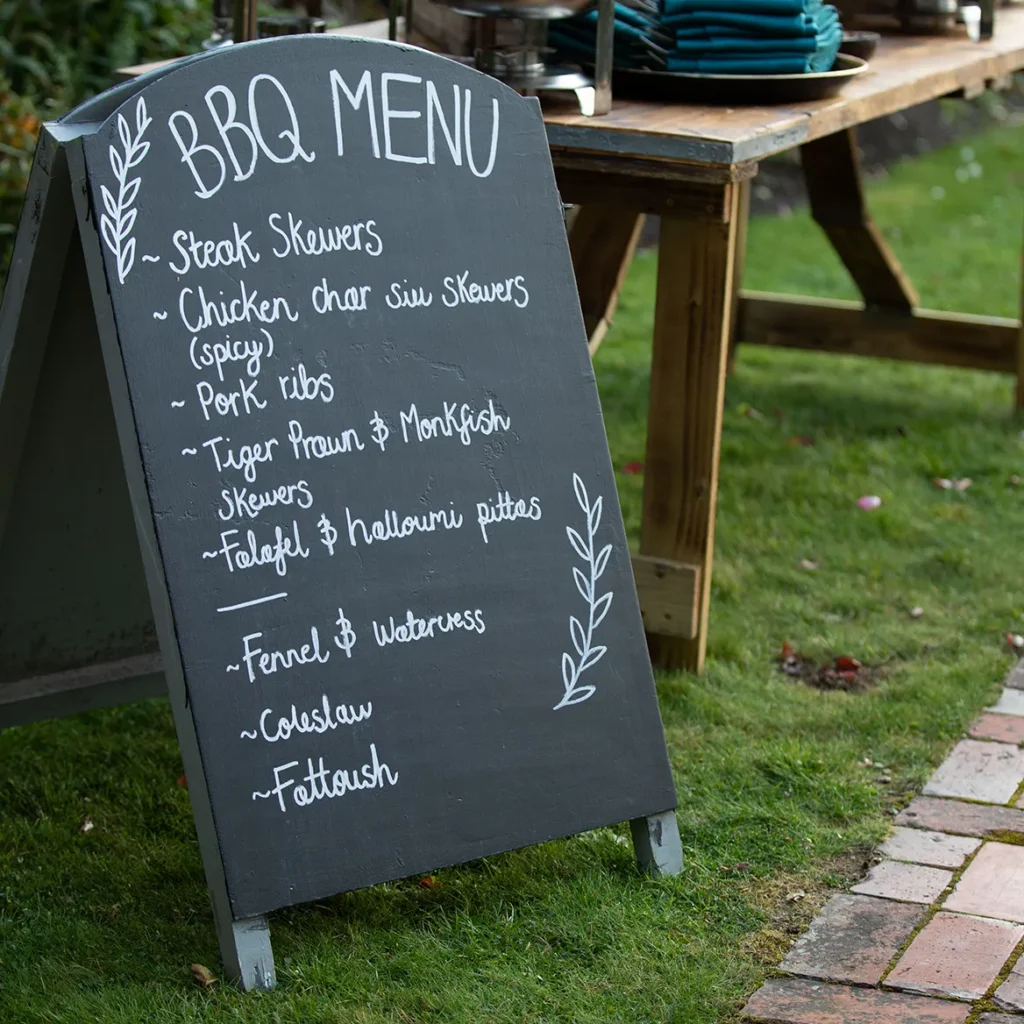 BBQ MENU
~ Steak Skewers
~ Chicken char siu skewers
(spicy)
~ Pork ribs
~ Tiger Prawn & Monkfish
skewers
~ Falafel & halloumi pittas
—
~ Fennel & Watercress
~ Coleslaw
~ Fattoush